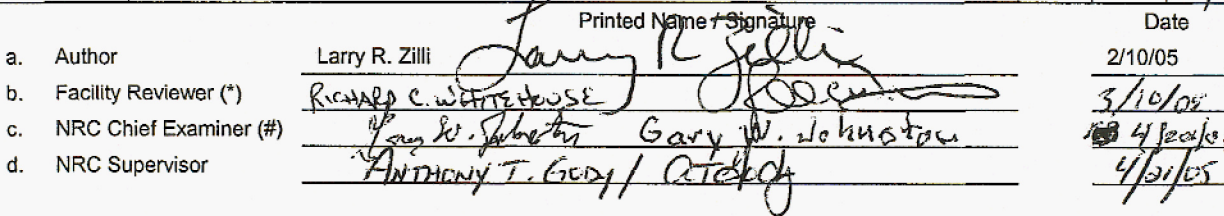 Printed Name / Signature Date
a. Author Larry R. Zilli Larry R Zilli 2/10/05
b. Facility Reviewer (*) RICHARD C. WHITEHOUSE 3/10/05
c. NRC Chief Examiner (#) Gary W. Johnston Gary W. Johnston 4/20/0
d. NRC Supervisor ANTHONY T. GODY / ATGody 4/21/05